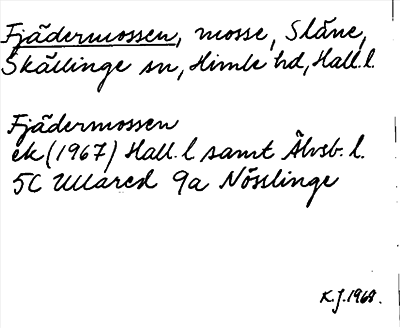 Fjädermossen, mosse, Slåne,
Skällinge sn, Himle hd, Hall.l.
Fjädermossen
ek (1967) Hall.l samt Älvsb.l.
5C Ullared 9a Nösslinge
K.J.1968.